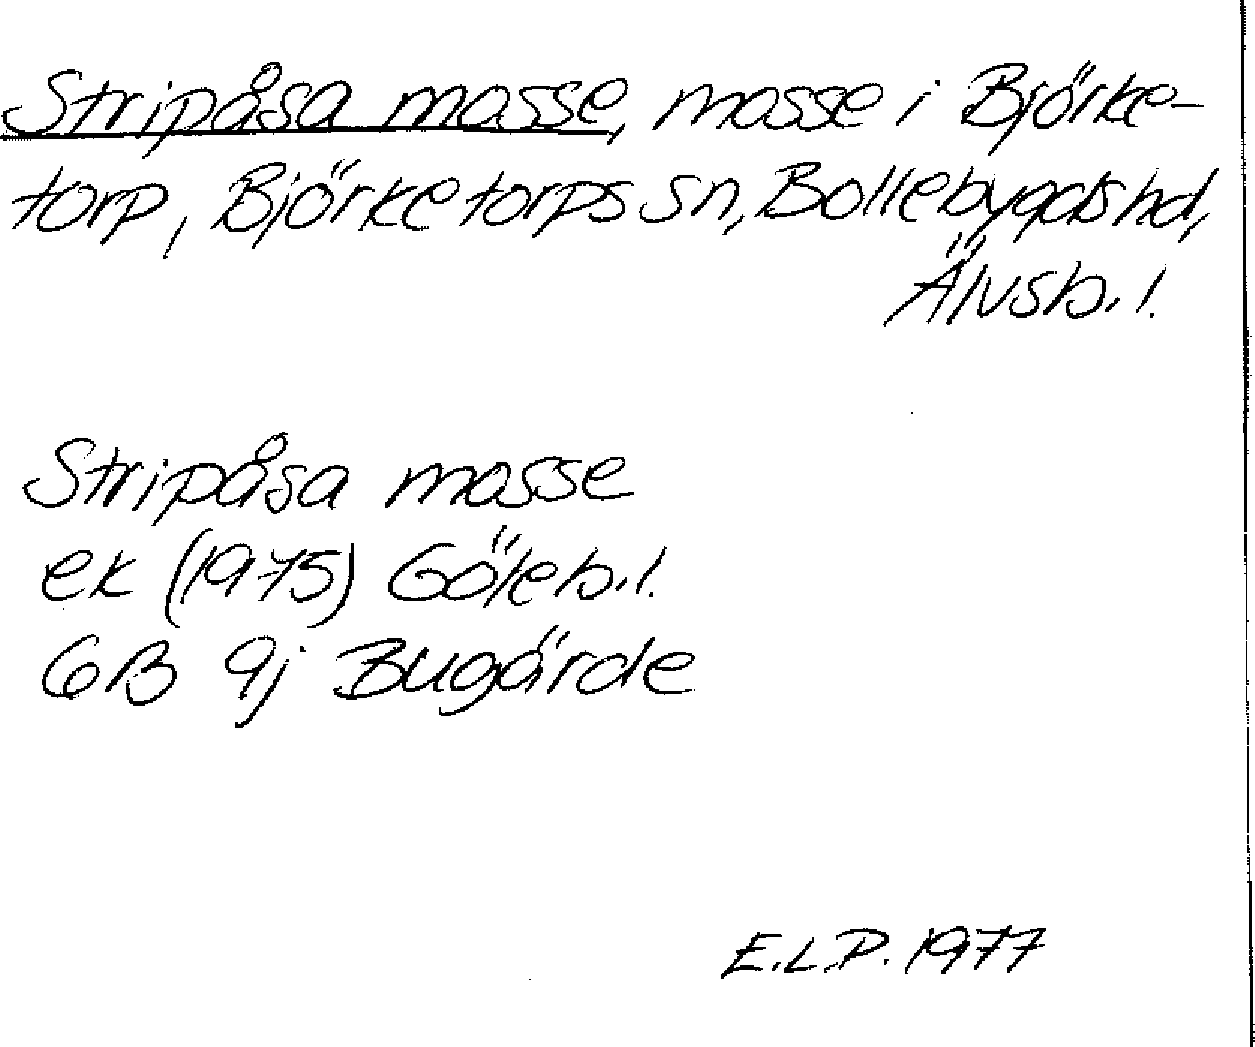 Stripåsa mosse, mosse i Björke-
torp, Björketorps sn, Bollebygds hd,
Älvsb. l.
Stripåsa mosse
ek (1975) Göteb. l.
6B 9j Bugärde
E.L.P. 1977